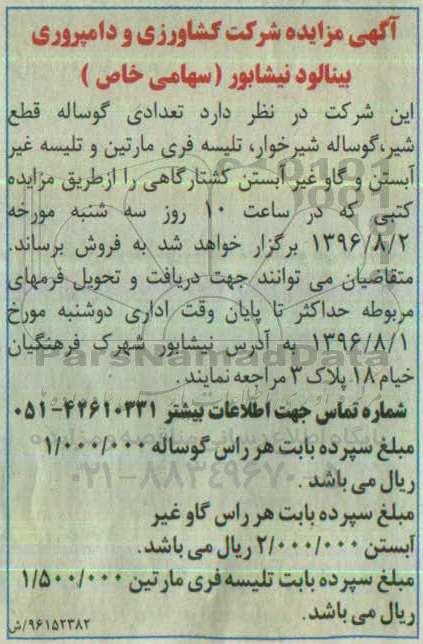 آگهی مزایده شرکت کشاورزی و دامپروری
بینالود نیشابور (سهامی خاص)
این شرکت در نظر دارد تعدادی گوساله قطع
شیر،گوساله شیرخوار، تلیسه فری مارتین و تلیسه غیر
آبستن و گاو غیر آبستن کشتارگاهی را ازطریق مزایده
کتبی که در ساعت ۱۰ روز سه شنبه مورخه
۱۳۹۶/۸/۲ برگزار خواهد شد به فروش برساند.
متقاضیان می توانند جهت دریافت و تحویل فرمهای
مربوطه حداکثر تا پایان وقت اداری دوشنبه مورخ
۱۳۹۶/۸/۱ به آدرس نیشابور شهرک فرهنگیان
خیام ۱۸ پلاک ۳ مراجعه نمایند.
شماره تماس جهت اطلاعات بیشتر ۴۲۶۱۰۳۳۱-۰۵۱
مبلغ سپرده بابت هر راس گوساله ۱/۰۰۰/۰۰۰
ریال می باشد.
مبلغ سپرده بابت هر راس گاو غیر
آبستن ۲/۰۰۰/۰۰۰ ریال می باشد.
مبلغ سپرده بابت تلیسه فری مارتین ۱/۵۰۰/۰۰۰
ریال می باشد.
۹۶۱۵۲۳۸۲/ش
ParsNamadData
۰۲۱-۸۸۳۴۹۶۷۰